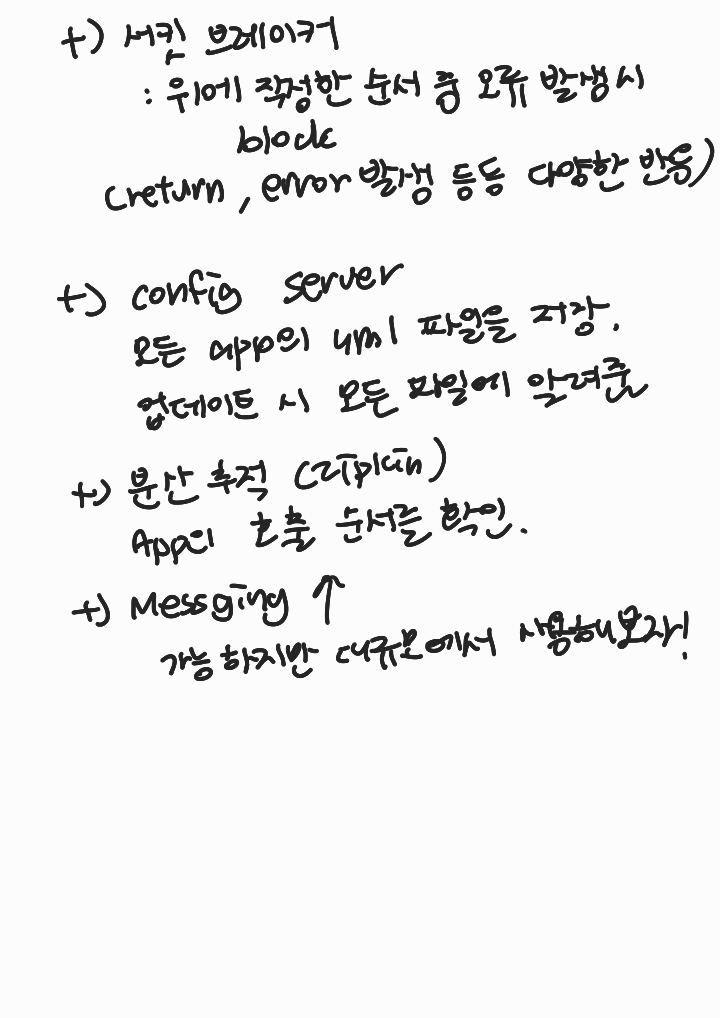 +) 서킷 브레이커
: 위에 작성한 순서 중 오류 발생 시
block
(return, error 발생 등등 다양한 반응)
+) config server
모든 app의 yml 파일을 저장.
업데이트 시 모든 파일에 알려준
+) 분산 추적 (zipkin)
App의 호출 순서를 확인.
+) Messging ↑
가능하지만 대규모에서 사용해보자!